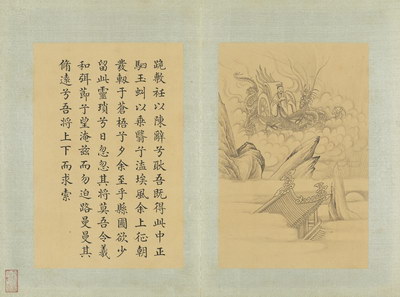 跪敷衽以陳辭兮耿吾既得此中正
駟玉虯以乘鷖兮溘埃風余上征朝
發軔于蒼梧兮夕余至乎縣圃欲少
留此靈瑣兮日忽忽其將莫吾令羲
和弭節兮望淹兹而勿迫路曼曼其
脩遠兮吾將上下而求索